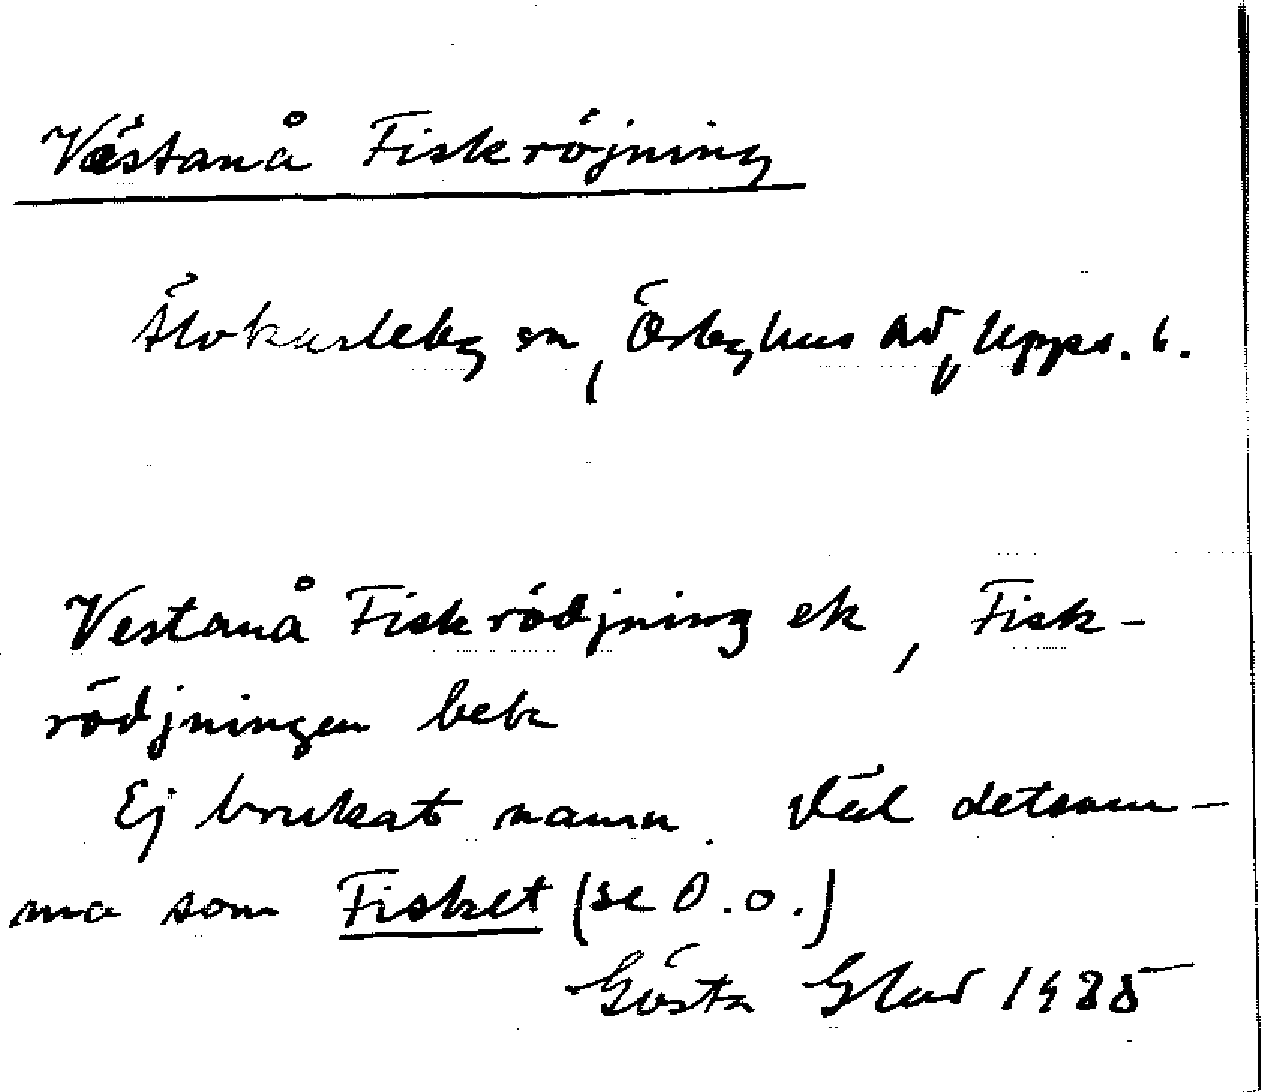 Västanå Fiskröjning
Älvkarleby sn, Örbyhus hd, Upps. l.
Vestanå Fiskrödjning ek, Fisk-
rödjningen bek
Ej brukat namn. Väl detsam-
ma som Fisket (se d.o.)
Gösta Glad 1985